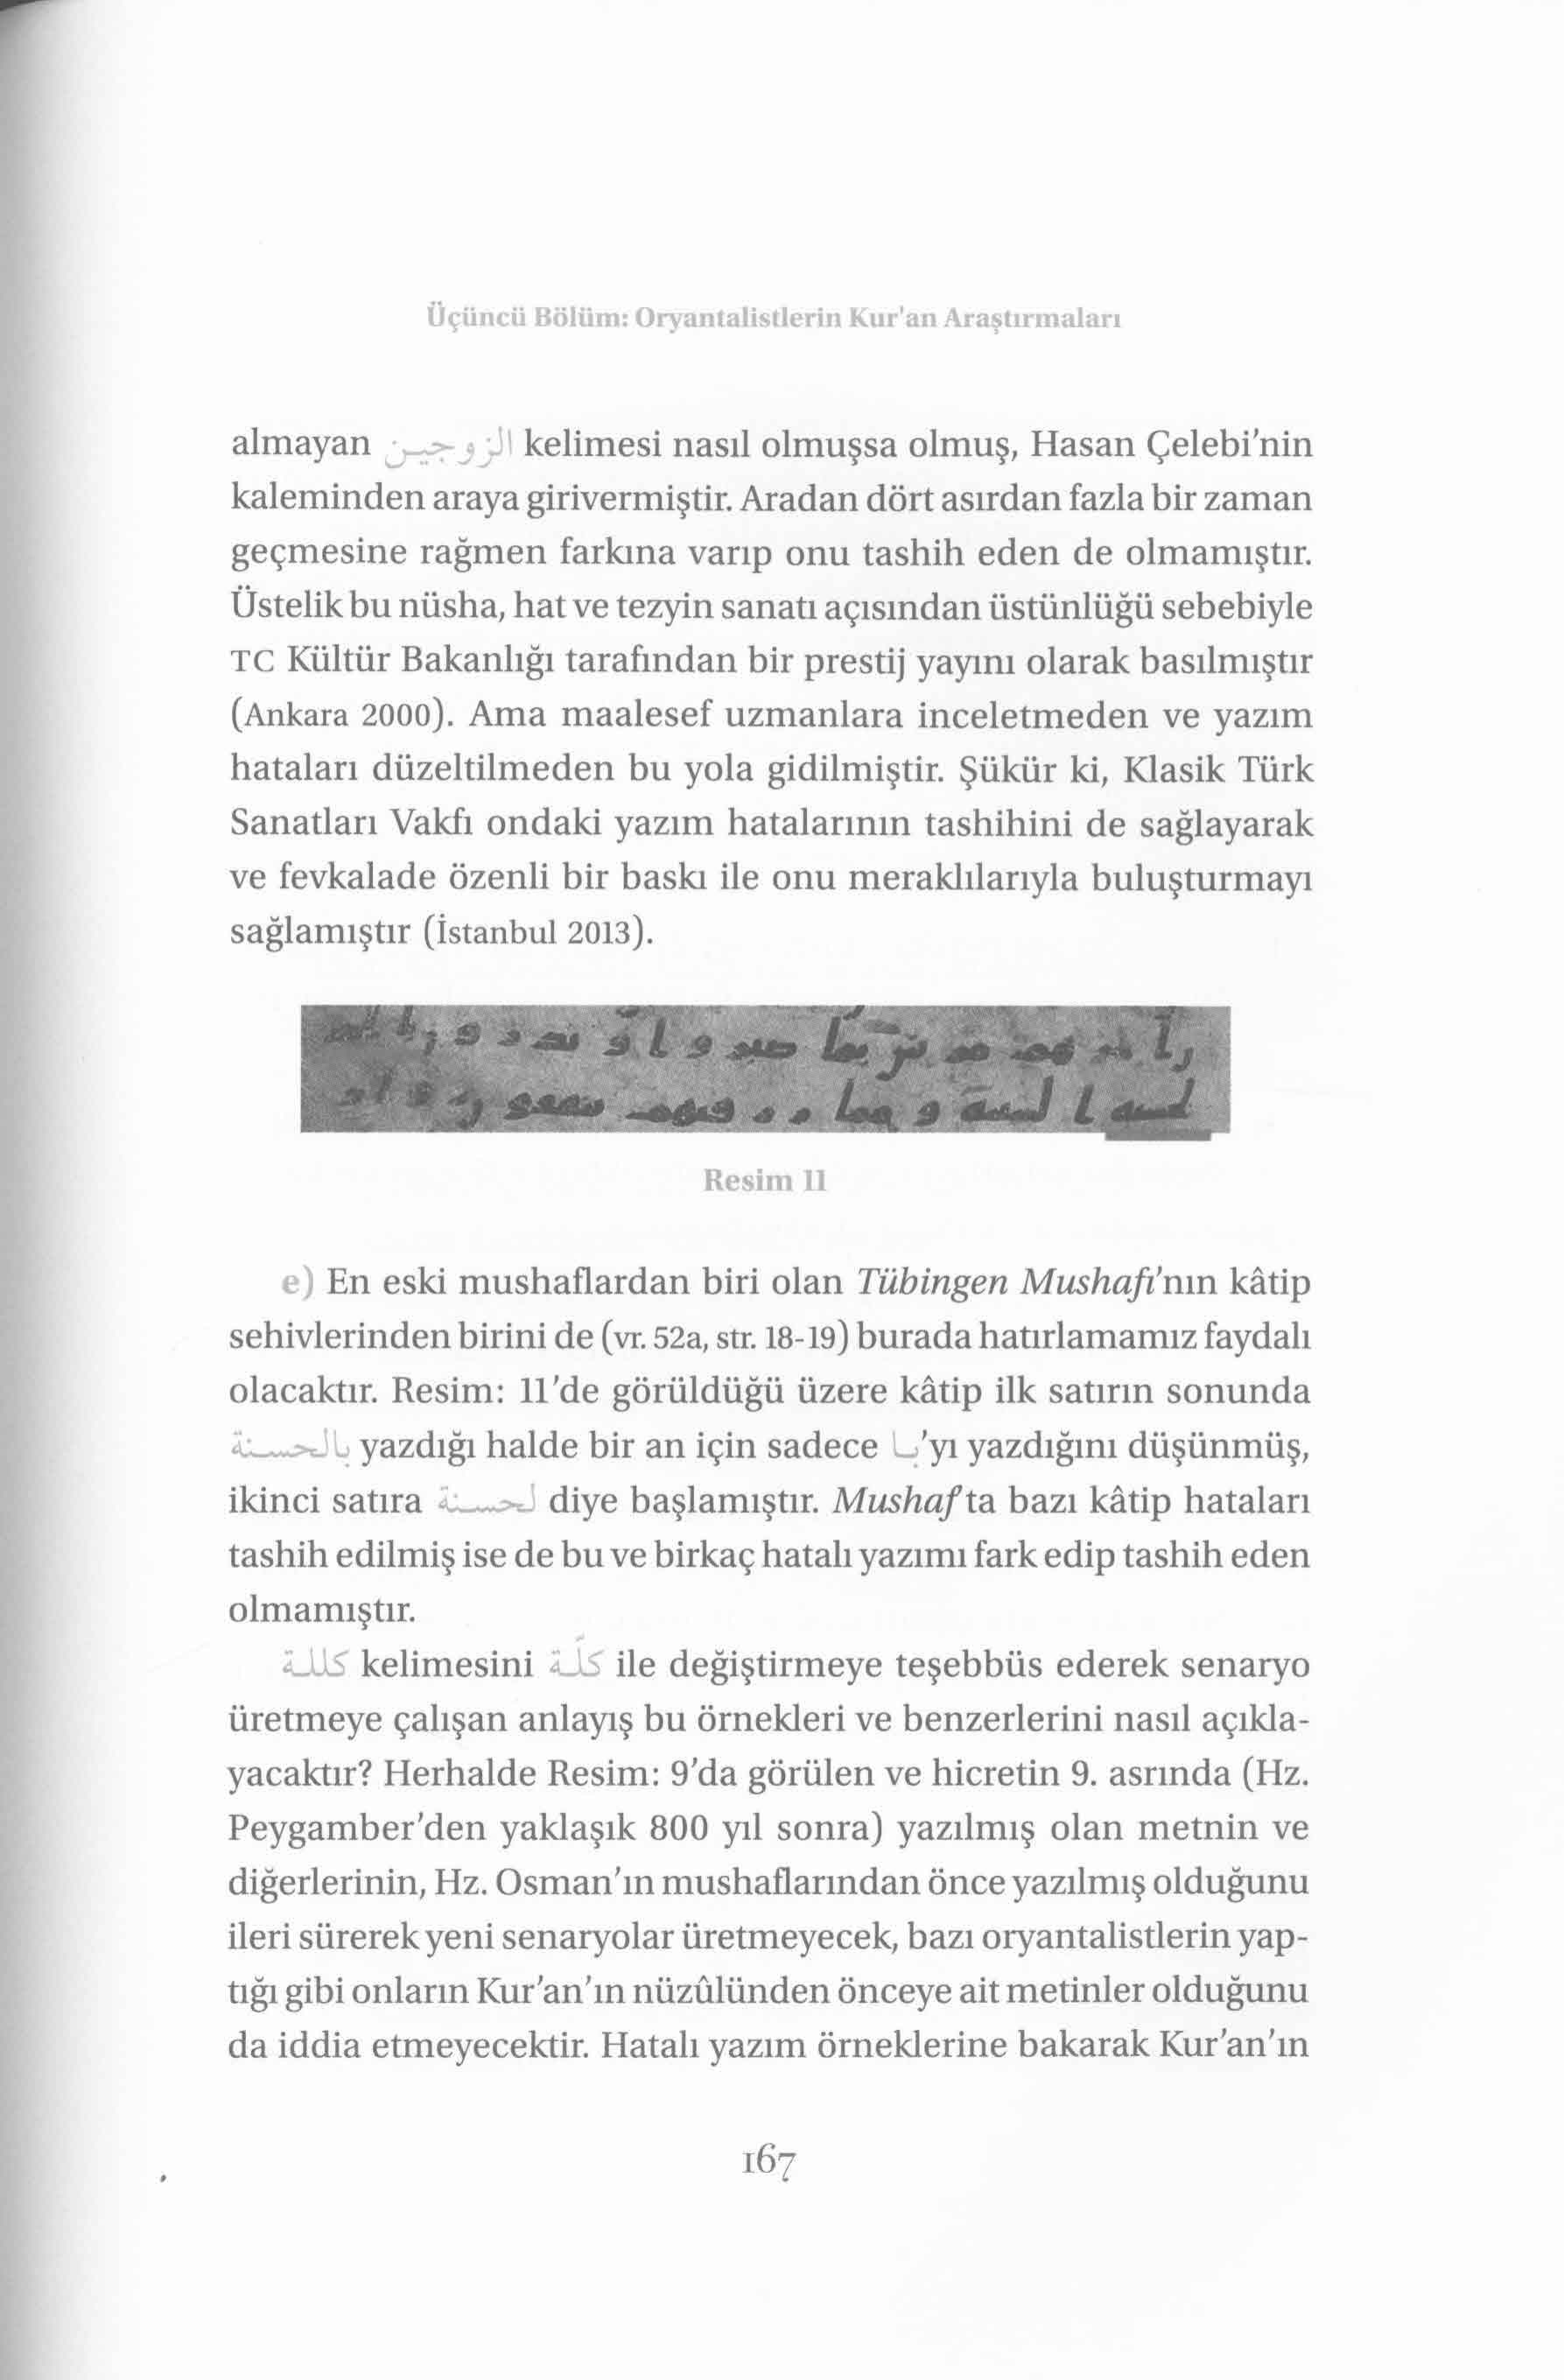 Üçüncü Bölüm: Oryantalistlerin Kur'an Araştırmaları
almayan الزوجين kelimesi nasıl olmuşsa olmuş, Hasan Çelebi'nin
kaleminden araya girivermiştir. Aradan dört asırdan fazla bir zaman
geçmesine rağmen farkına varıp onu tashih eden de olmamıştır.
Üstelik bu nüsha, hat ve tezyin sanatı açısından üstünlüğü sebebiyle
TC Kültür Bakanlığı tarafından bir prestij yayını olarak basılmıştır
(Ankara 2000). Ama maalesef uzmanlara inceletmeden ve yazım
hataları düzeltilmeden bu yola gidilmiştir. Şükür ki, Klasik Türk
Sanatları Vakfı ondaki yazım hatalarının tashihini de sağlayarak
ve fevkalade özenli bir baskı ile onu meraklılarıyla buluşturmayı
sağlamıştır (İstanbul 2013).
Resim 11
e) En eski mushaflardan biri olan Tübingen Mushafı'nın kâtip
sehivlerinden birini de (vr. 52a, str. 18-19) burada hatırlamamız faydalı
olacaktır. Resim: 11'de görüldüğü üzere kâtip ilk satırın sonunda
بالحسنة yazdığı halde bir an için sadece با'yı yazdığını düşünmüş,
ikinci satıra لحسنة diye başlamıştır. Mushaf'ta bazı kâtip hataları
tashih edilmiş ise de bu ve birkaç hatalı yazımı fark edip tashih eden
olmamıştır.
كللة kelimesini كلّة ile değiştirmeye teşebbüs ederek senaryo
üretmeye çalışan anlayış bu örnekleri ve benzerlerini nasıl açıkla-
yacaktır? Herhalde Resim: 9'da görülen ve hicretin 9. asrında (Hz.
Peygamber'den yaklaşık 800 yıl sonra) yazılmış olan metnin ve
diğerlerinin, Hz. Osman'ın mushaflarından önce yazılmış olduğunu
ileri sürerek yeni senaryolar üretmeyecek, bazı oryantalistlerin yap-
tığı gibi onların Kur'an'ın nüzûlünden önceye ait metinler olduğunu
da iddia etmeyecektir. Hatalı yazım örneklerine bakarak Kur'an'ın
167